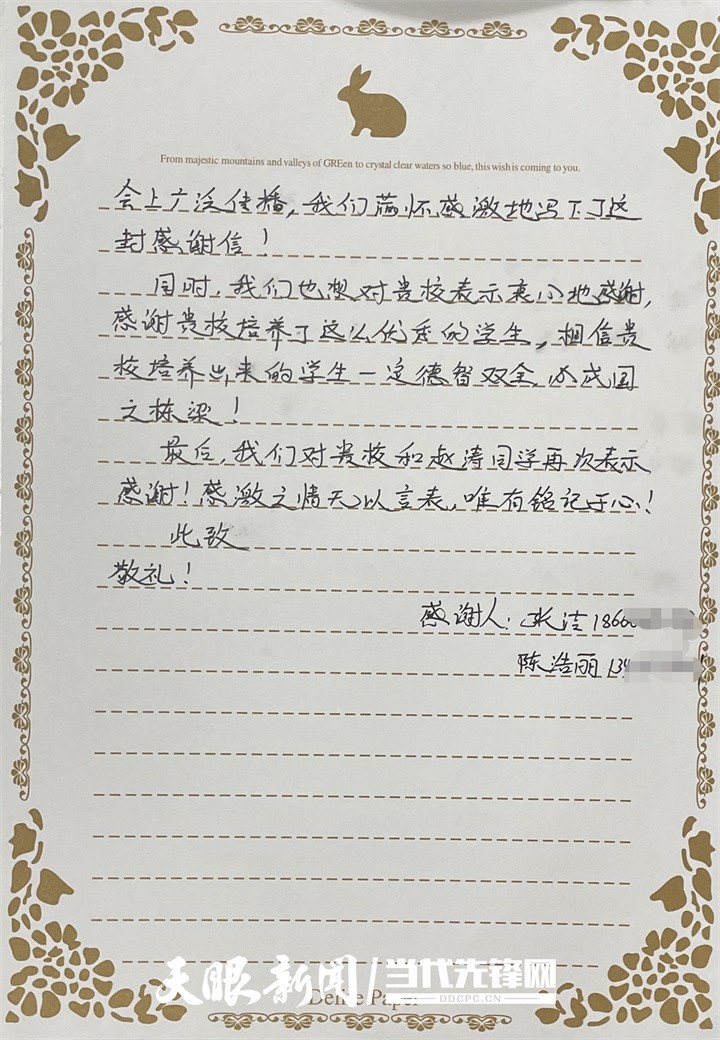 From majestic mountains and valleys of GREen to crystal clear waters so blue, this wish is coming to you.
会上广泛传播，我们满怀感激地写下了这
封感谢信！
同时，我们也想对贵校表示衷心地感谢，
感谢贵校培养了这么优秀的学生，相信贵
校培养出来的学生一定德智双全 必成国
之栋梁！
最后，我们对贵校和赵涛同学再次表示
感谢！感激之情无以言表，唯有铭记于心！
此致
敬礼！
感谢人：张洁 1866
陈浩丽 139
天眼新闻/当代先锋网
DDCPC.CN
Deline Paper